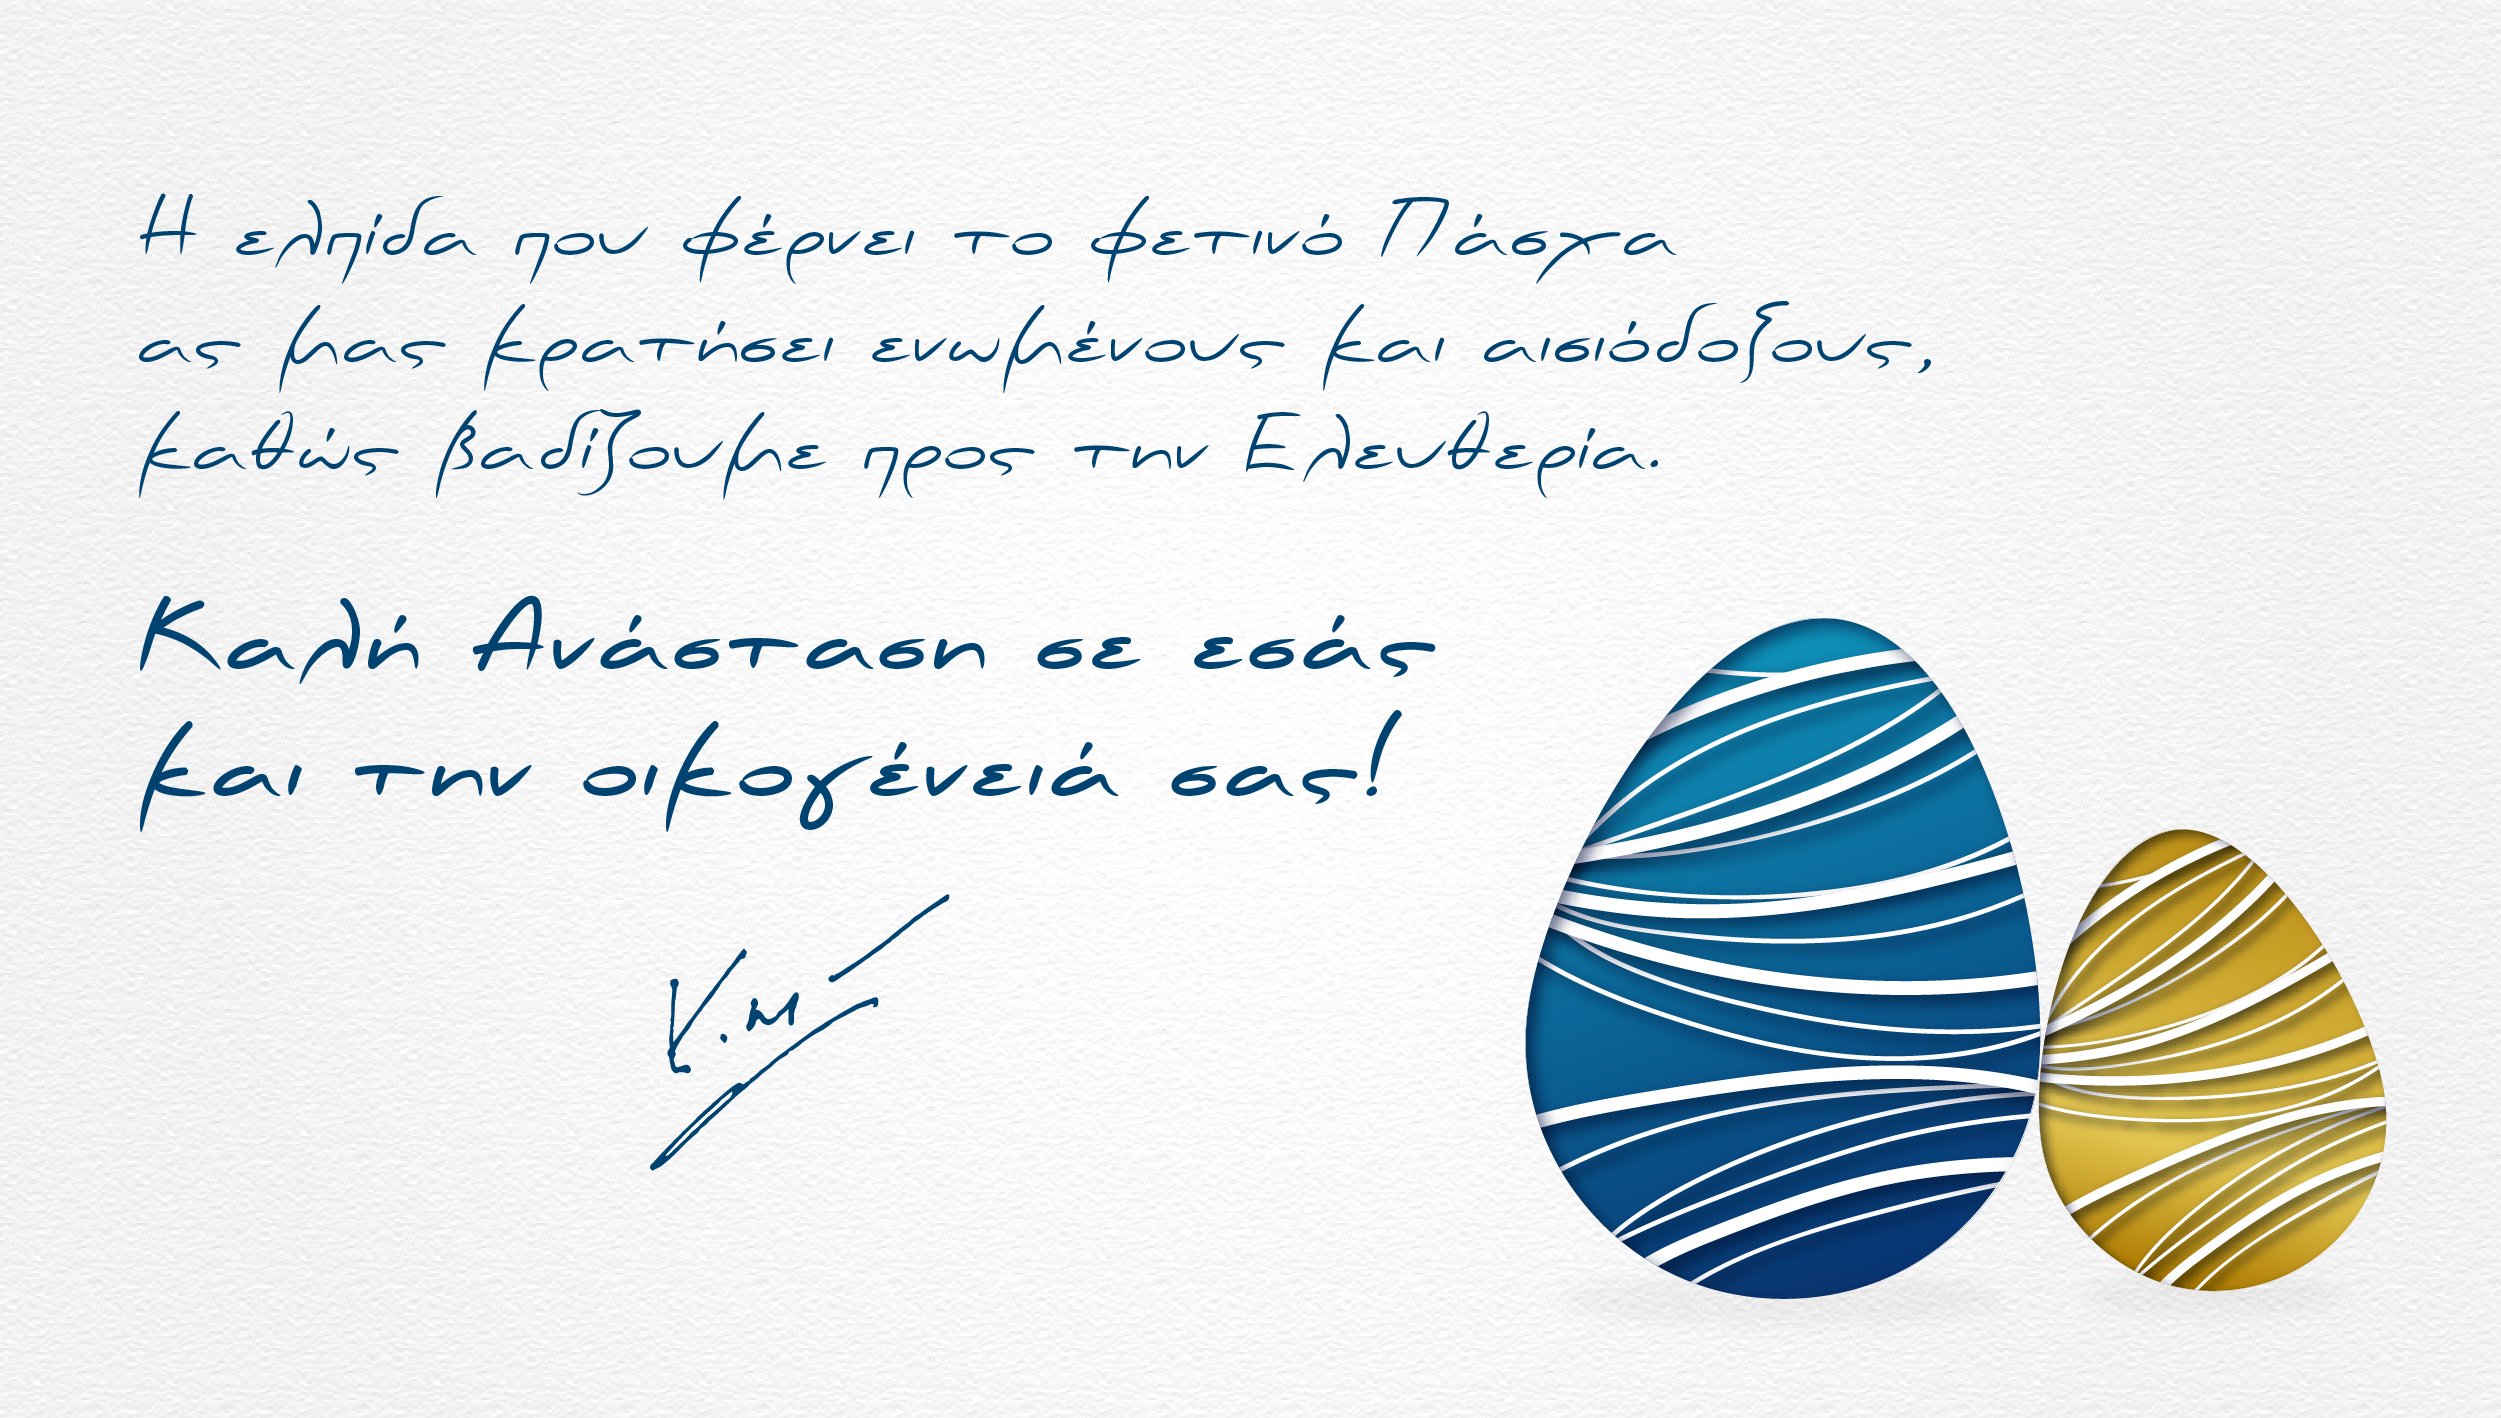 Η ελπίδα που φέρνει το φετινό Πάσχα
ας μας κρατήσει ενωμένους και αισιόδοξους,
καθώς βαδίζουμε προς την Ελευθερία.
Καλή Ανάσταση σε εσάς
και την οικογένειά σας!
Κ.Μ